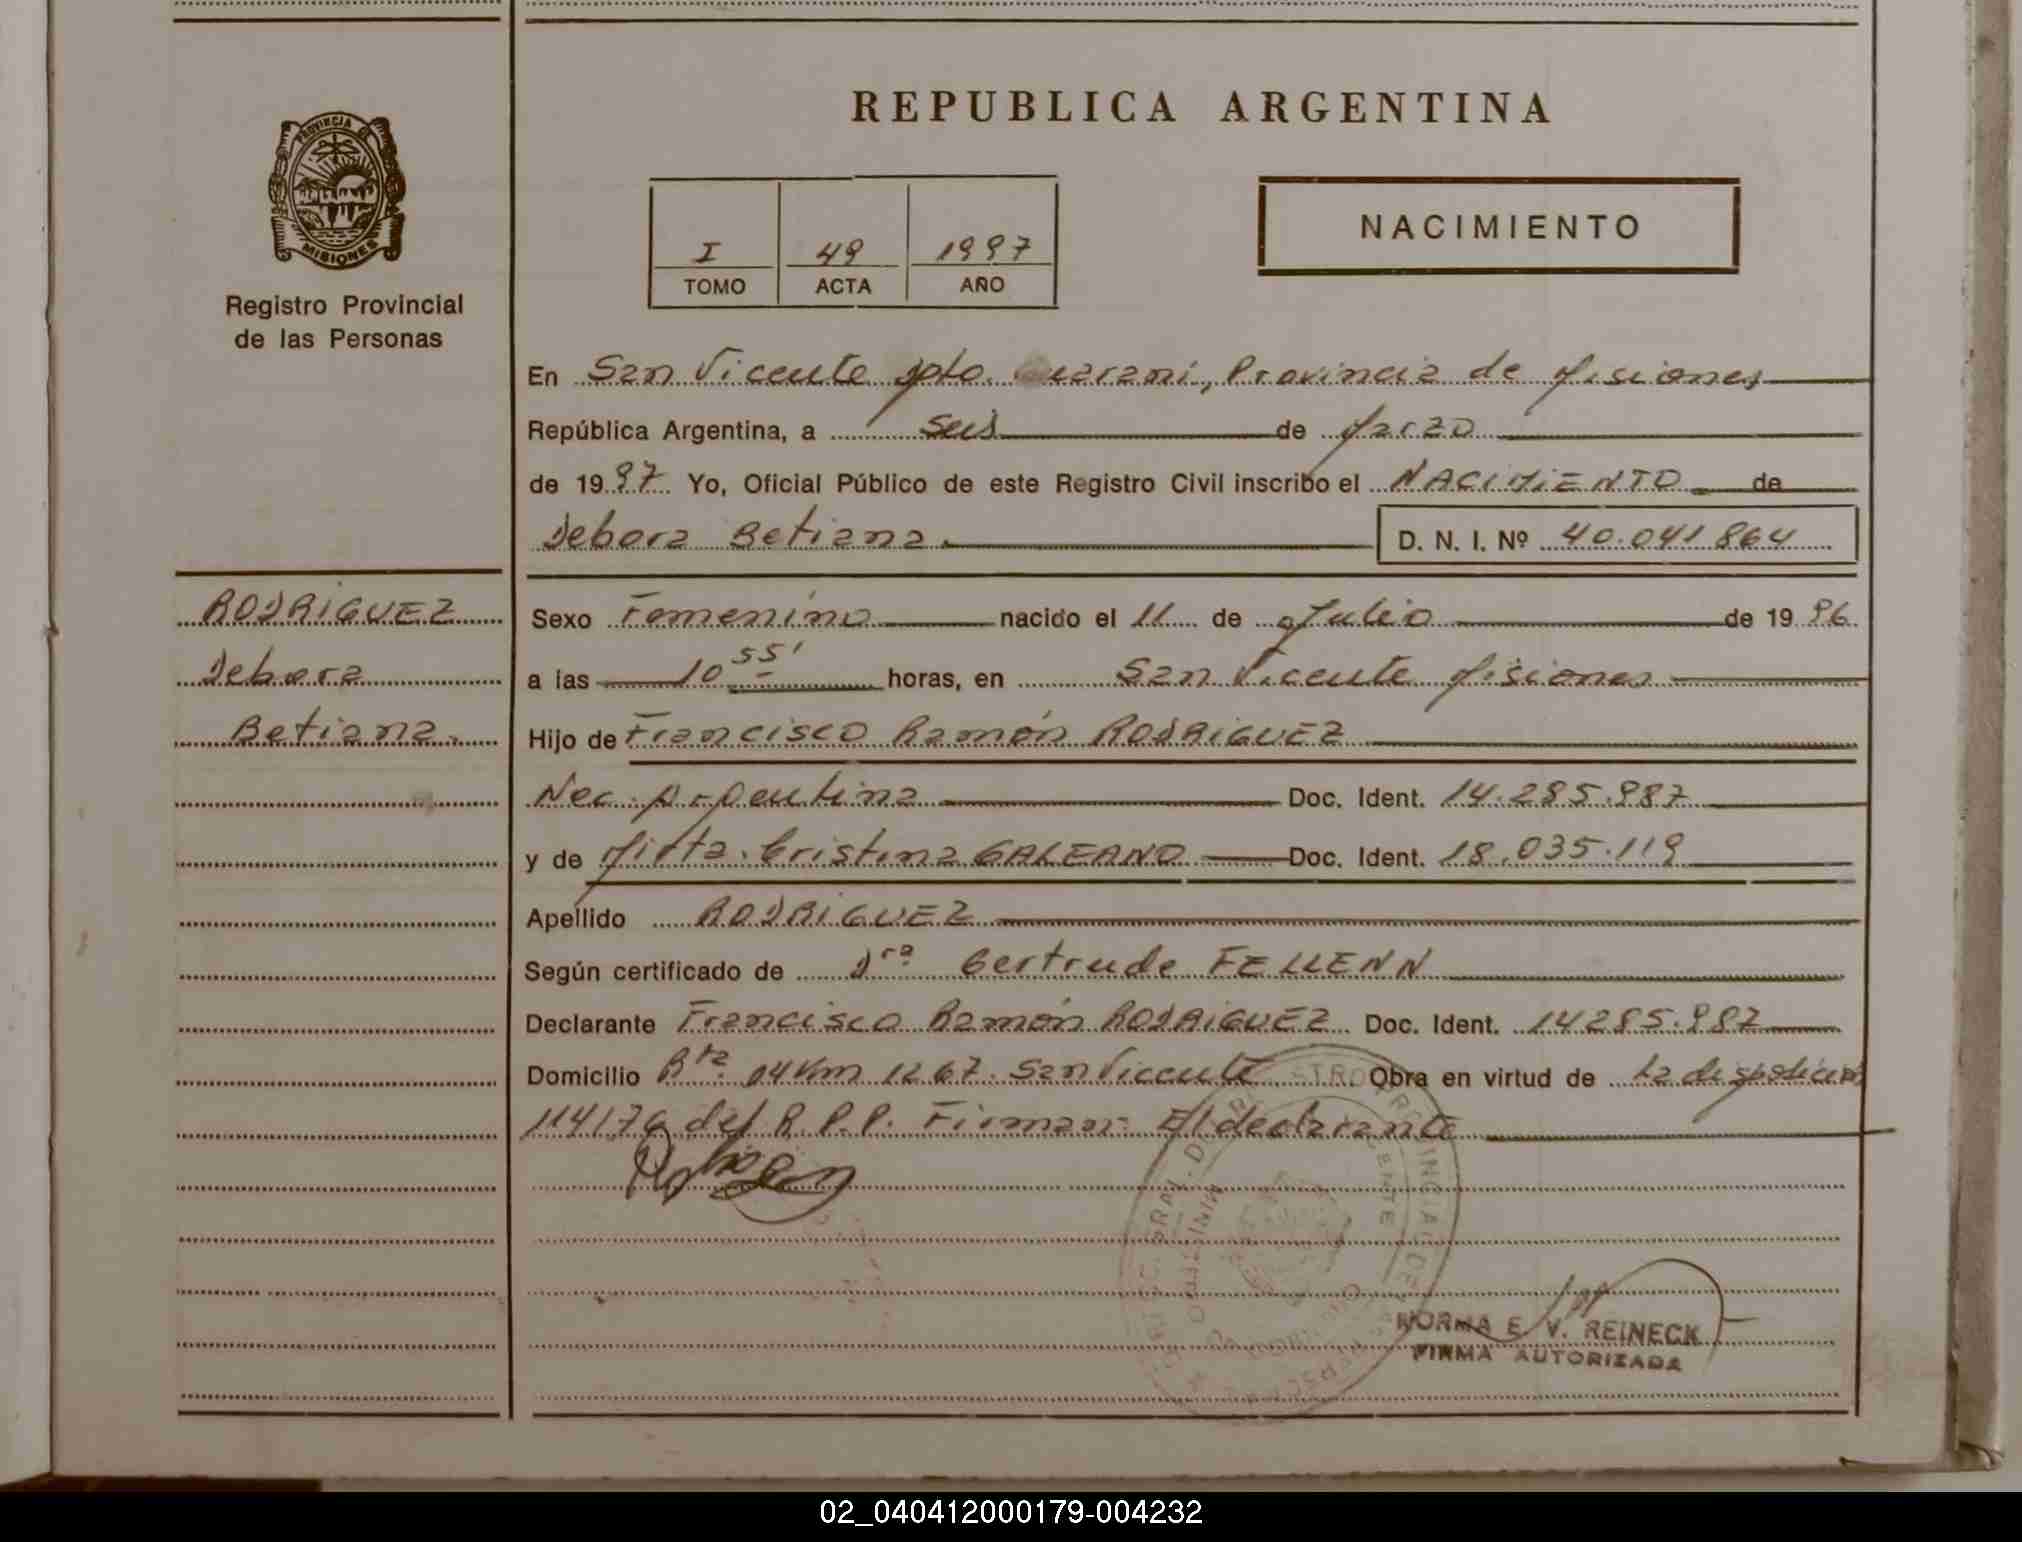 REPUBLICA ARGENTINA
PROVINCIA DE
MISIONES
Registro Provincial
de las Personas
I 49 1997
TOMO ACTA AÑO
NACIMIENTO
En San Vicente Dpto. Guaraní, Provincia de Misiones
República Argentina, a Seis de Marzo
de 1997 Yo, Oficial Público de este Registro Civil inscribo el NACIMIENTO de
Debora Betiana. D. N. I. Nº 40.041.864
RODRIGUEZ
Debora
Betiana.
Sexo Femenino nacido el 11 de Julio de 1996
a las 10 55' horas, en San Vicente Misiones
Hijo de Francisco Ramón RODRIGUEZ
Nac. Argentina Doc. Ident. 14.285.987
y de Mirta Cristina GALEANO Doc. Ident. 18.035.119
Apellido RODRIGUEZ
Según certificado de Dra. Gertrude FELLENN
Declarante Francisco Ramón RODRIGUEZ Doc. Ident. 14.285.987
Domicilio Rta. 14 Km 1267. San Vicente Obra en virtud de la disposición
114/76 del R.P.P. Firman: El declarante
NORMA E. V. REINECK
FIRMA AUTORIZADA
02_040412000179-004232